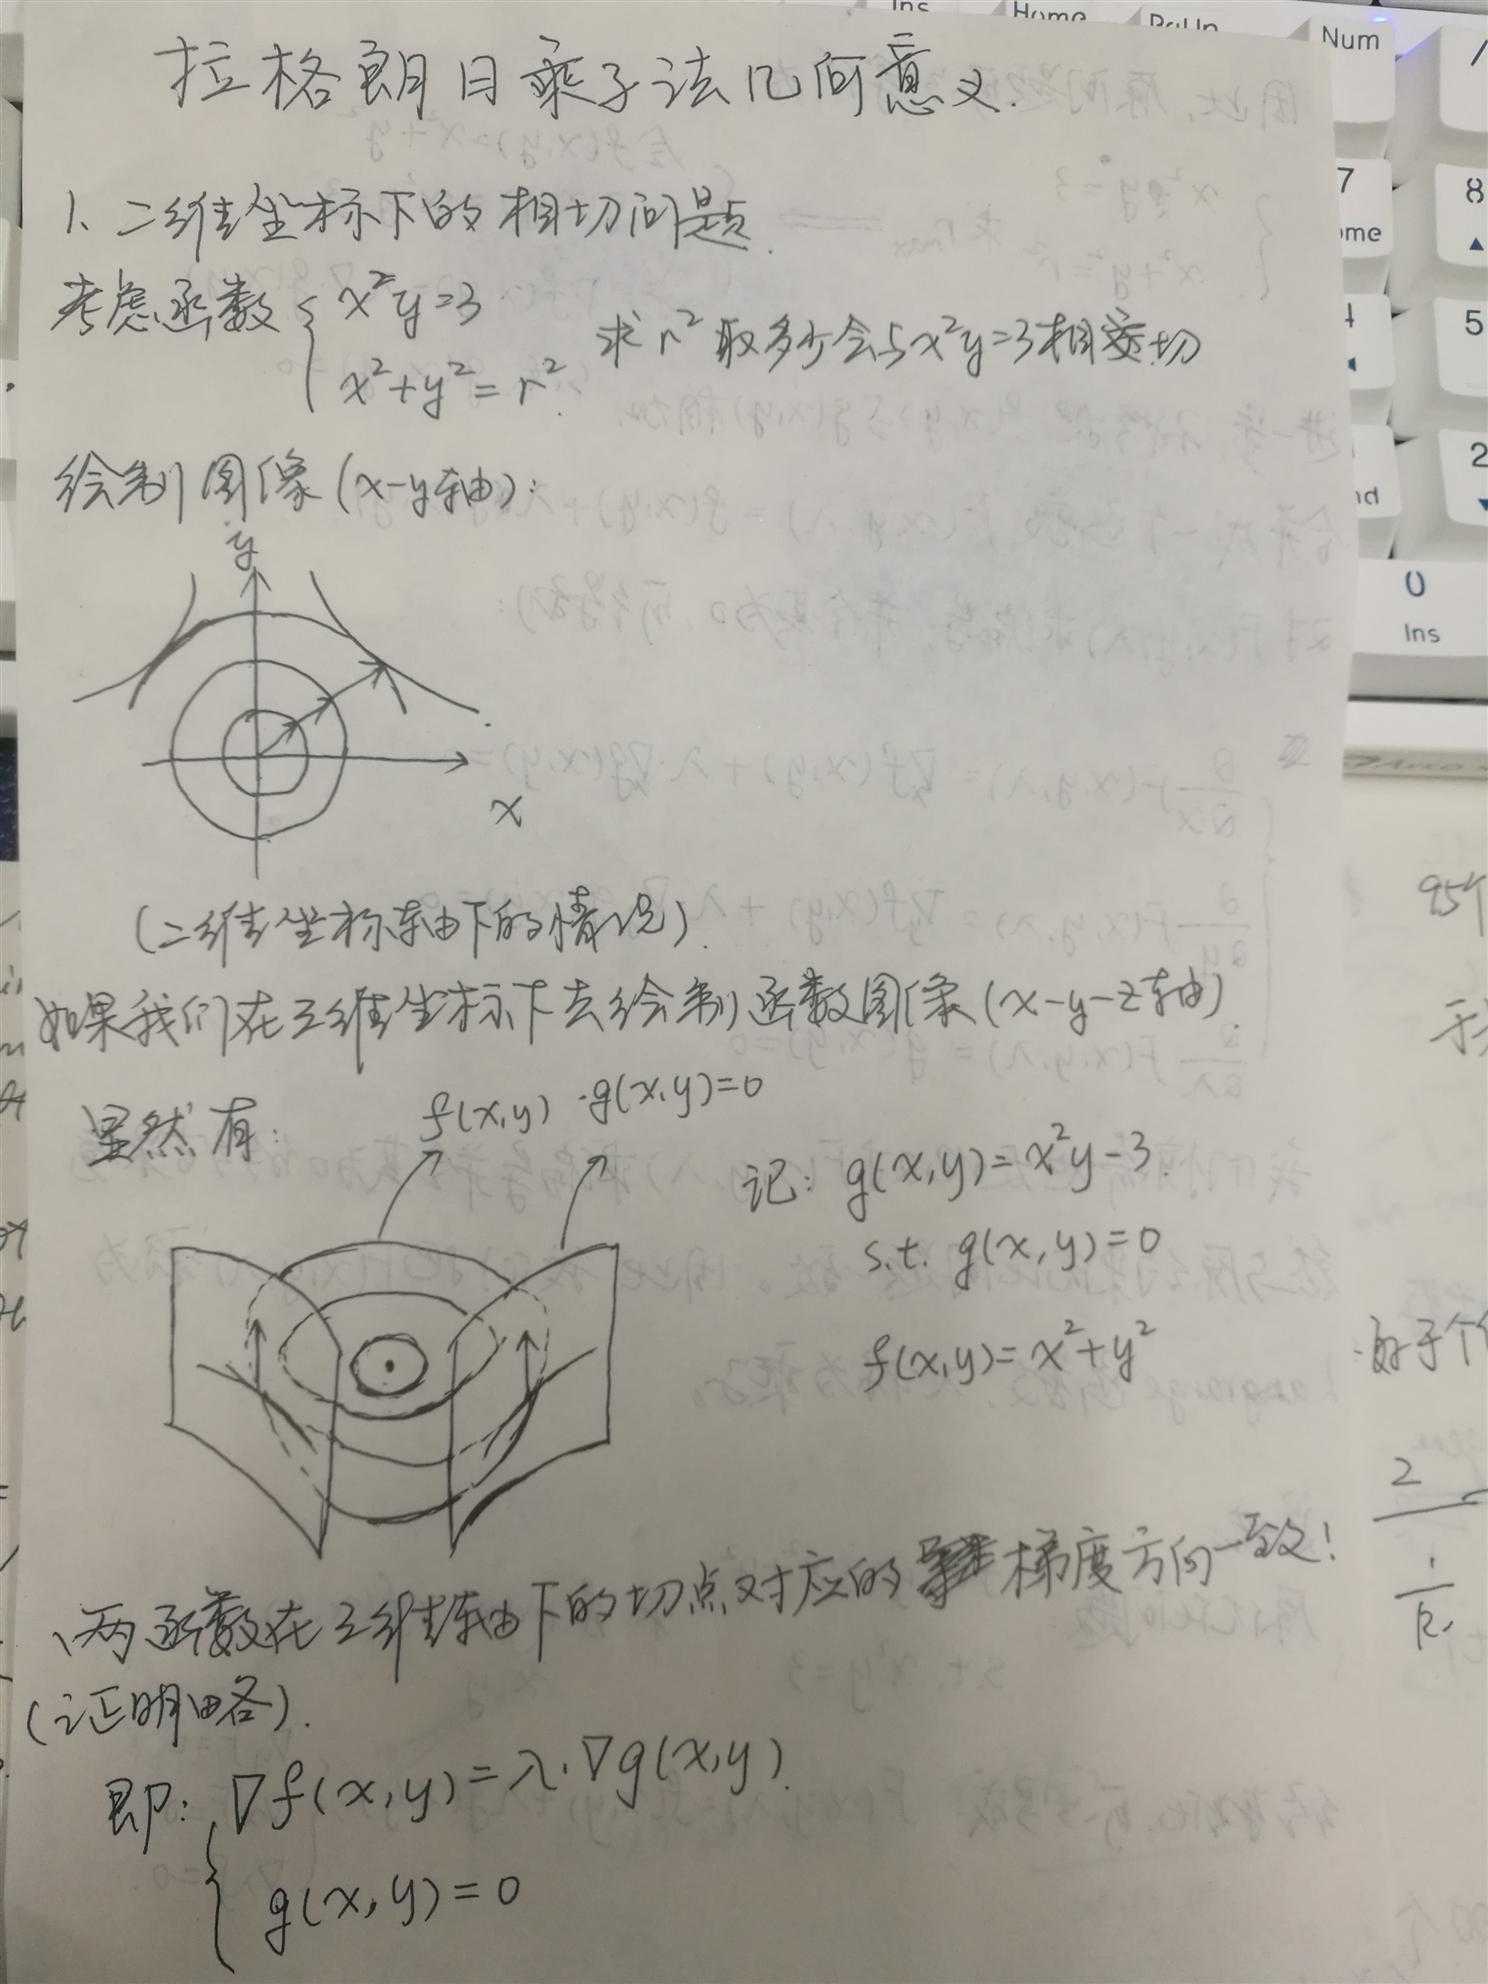 拉格朗日乘子法几何意义.
1、二维坐标下的相切问题.
考虑函数 { x²y=3
x²+y²=r². 求r²取多少会与x²y=3相切
绘制图像(x-y轴):
y
x
(二维坐标轴下的情况).
如果我们在三维坐标下去绘制函数图像(x-y-z轴).
显然有: f(x,y) g(x,y)=0
记: g(x,y)=x²y-3.
s.t. g(x,y)=0
f(x,y)=x²+y²
两函数在三维轴下的切点对应的梯度方向一致!
(证明略).
即: { ∇f(x,y)=λ·∇g(x,y).
g(x,y)=0
Ins Home PgUp Num /
7 8
ome
4 5
2
nd
0
Ins
2